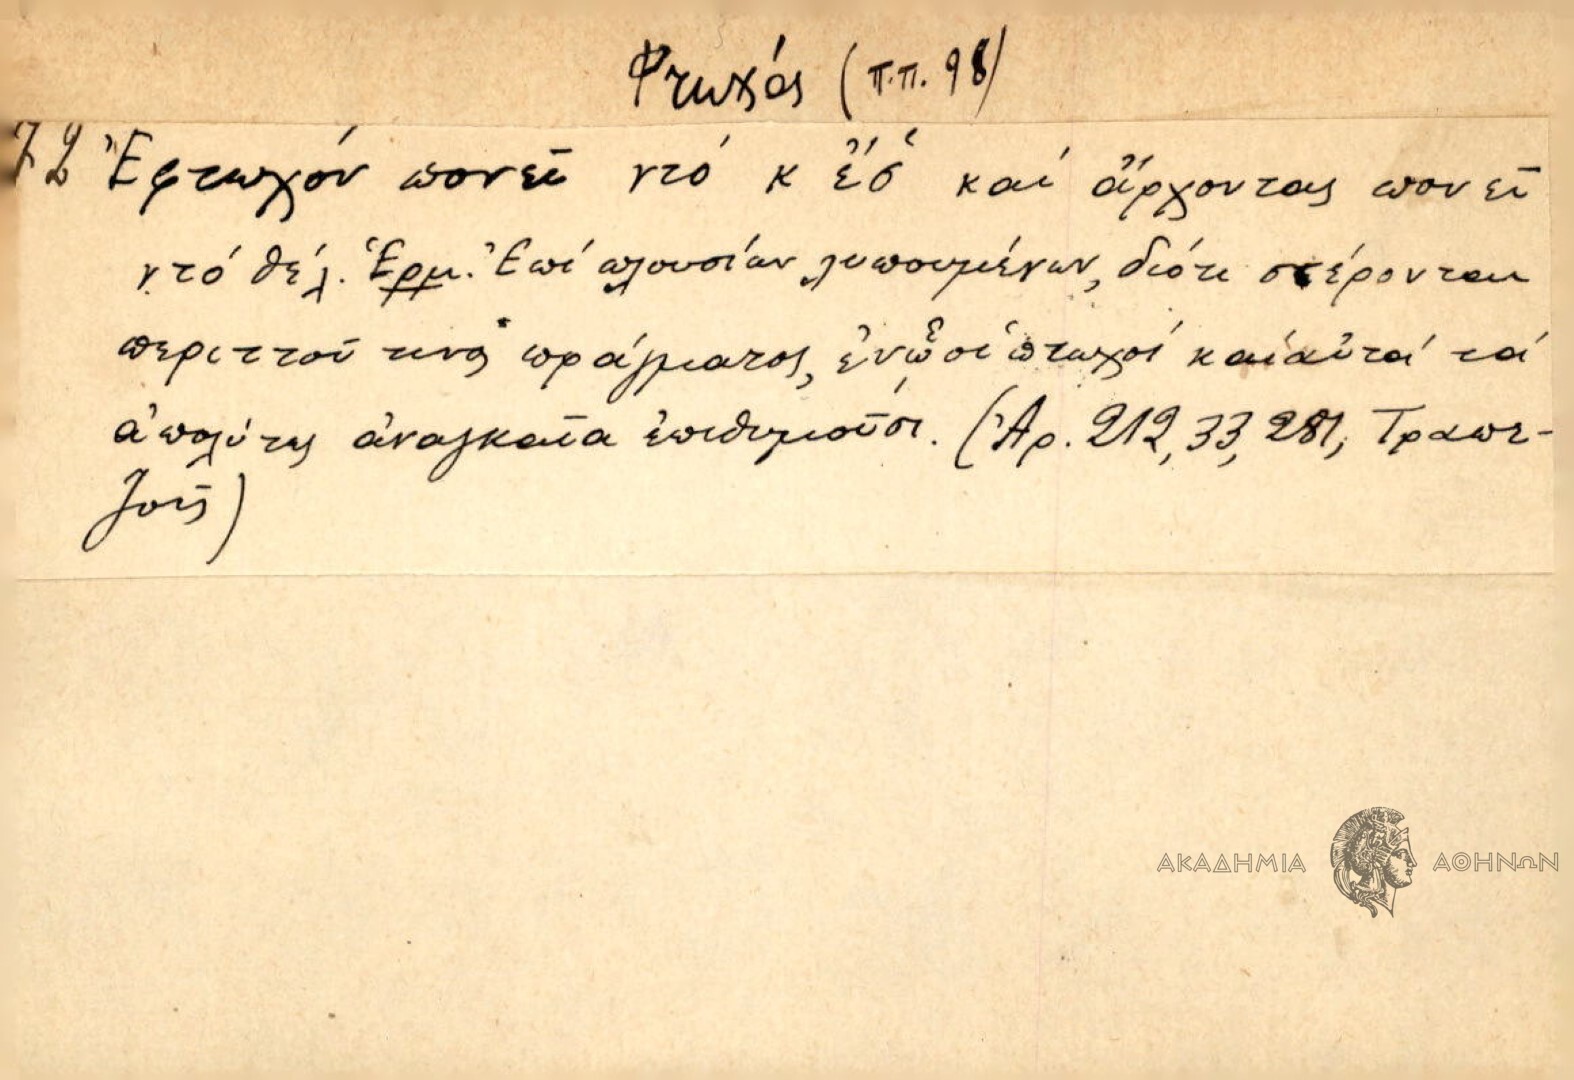 Φτωχός (π.π. 98)
72 Ἐφτωχόν πονεῖ ντό κ ἔσ̌ καί ἄρχοντας πονεῖ
ντό θέλ. Ἑρμ. Ἐπί πλουσίων λυπουμένων, διότι στέρονται
περιττοῦ τινος πράγματος, ἐνῷ οἱ πτωχοί καί αὐτά τά
ἀπολύτως ἀναγκαῖα ἐπιθυμοῦσι. (Ἀρ. 212, 33, 281, Τραπε-
ζοῦς)
ΑΚΑΔΗΜΙΑ ΑΘΗΝΩΝ